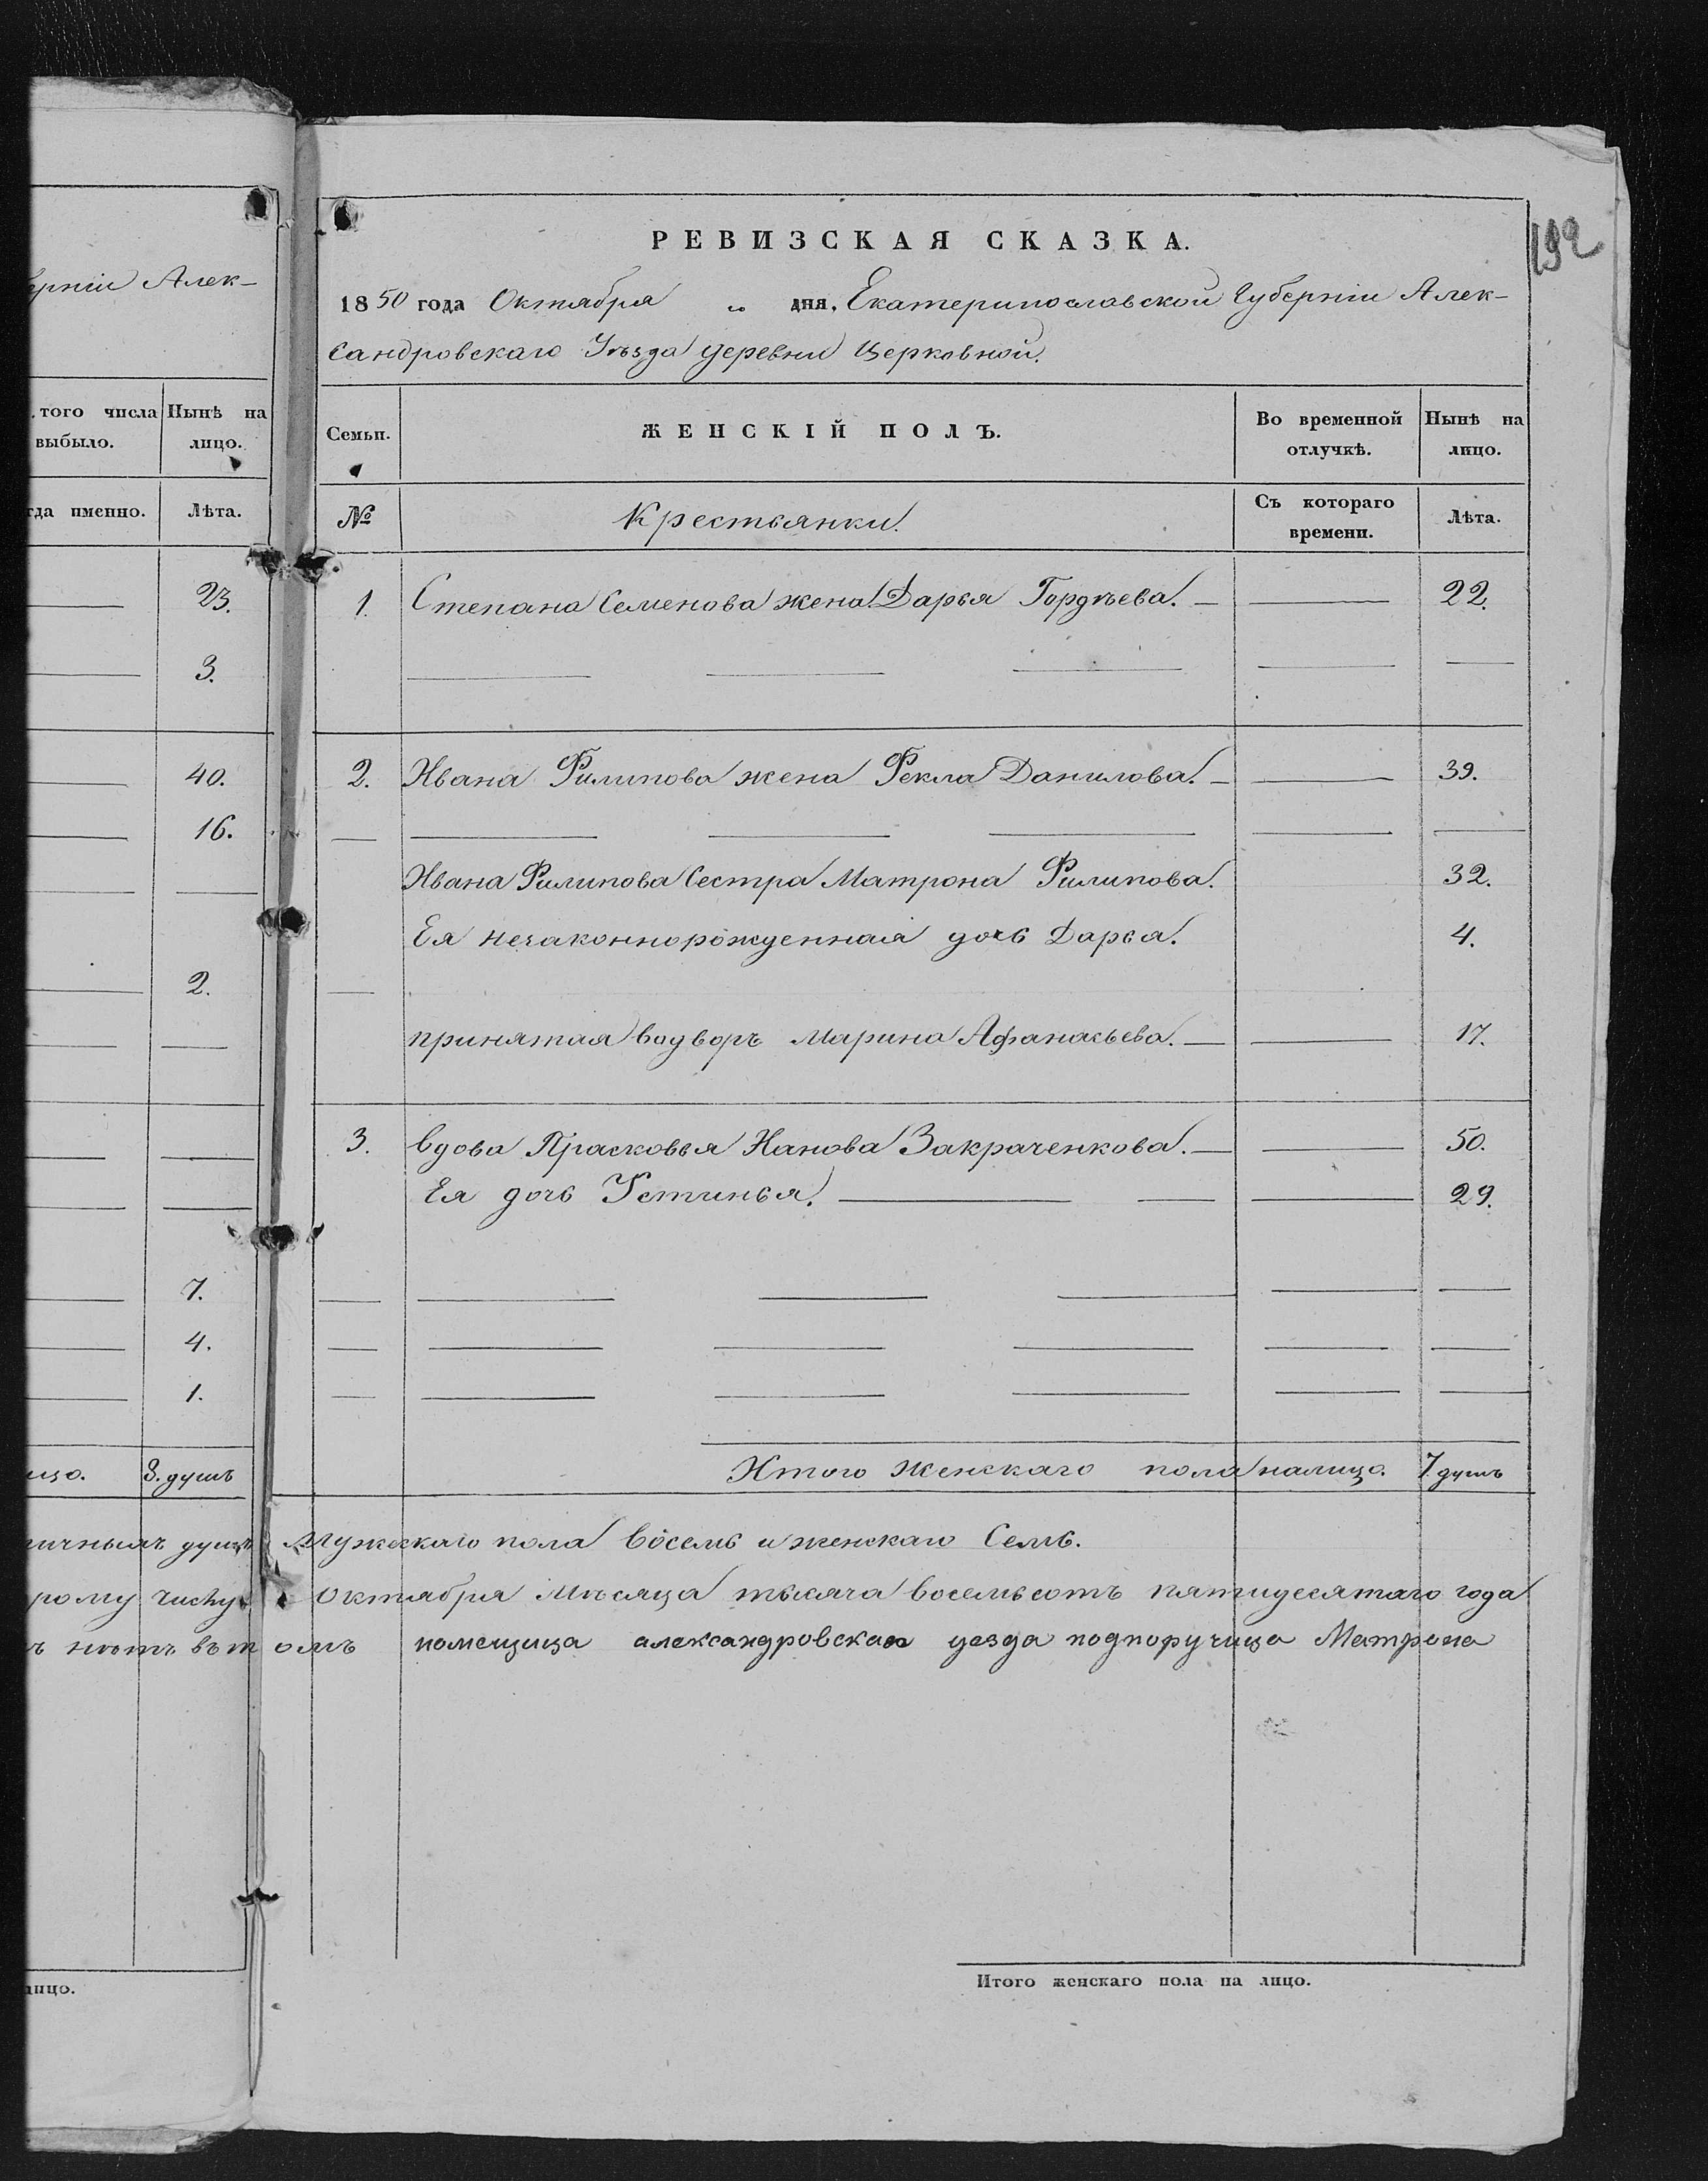 192
РЕВИЗСКАЯ СКАЗКА.
1850 года Октября „ дня. Екатеринославской Губерніи Алек-
сандровскаго Уѣзда деревни Церковной.
Семьи.
ЖЕНСКІЙ ПОЛЪ.
Во временной отлучкѣ.
Нынѣ на лицо.
№
Крестьянки.
Съ котораго времени.
Лѣта.
1. Степана Семенова жена Дарья Гордѣева. 22.
2. Ивана Филипова жена Фекла Данилова. 39.
Ивана Филипова Сестра Матрона Филипова. 32.
Ея незаконнорожденная дочь Дарья. 4.
принятая водворъ Марина Афанасьева. 17.
3. Вдова Прасковья Иванова Закраченкова. 50.
Ея дочь Устинья. 29.
Итого женскаго пола налицо. 7. душъ
Мужескаго пола восемь и женскаго Семь.
Октября Мѣсяца тысяча восемьсотъ пятидесятаго года
омъ помещица александровскаго уезда подпоручица Матрона
Итого женскаго пола на лицо.
ерніи Алек-
того числа выбыло.
Нынѣ на лицо.
гда именно.
Лѣта.
23.
3.
40.
16.
2.
7.
4.
1.
ицо. 8. душъ
ичныхъ душъ
рому числу
ъ нѣтъ въ т
лицо.